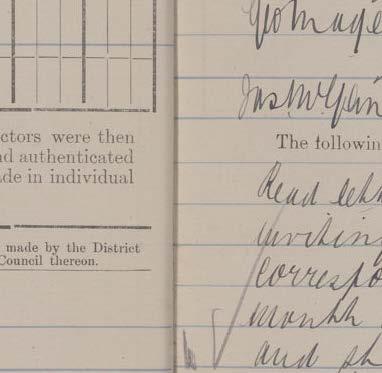 ctors were then
nd authenticated
ade in individual
made by the District
Council thereon.
The followin
Read lett
inviting
Correspo
month
and sh